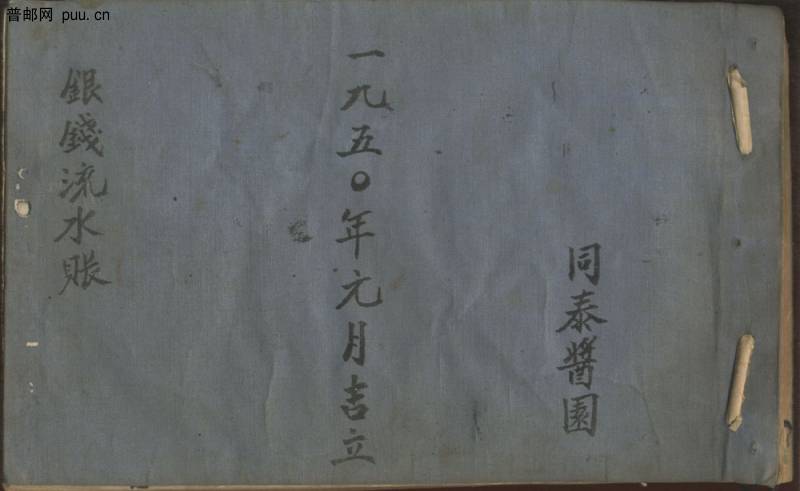 普邮网 puu.cn
同泰醬園
一九五〇年元月吉立
銀錢流水賬